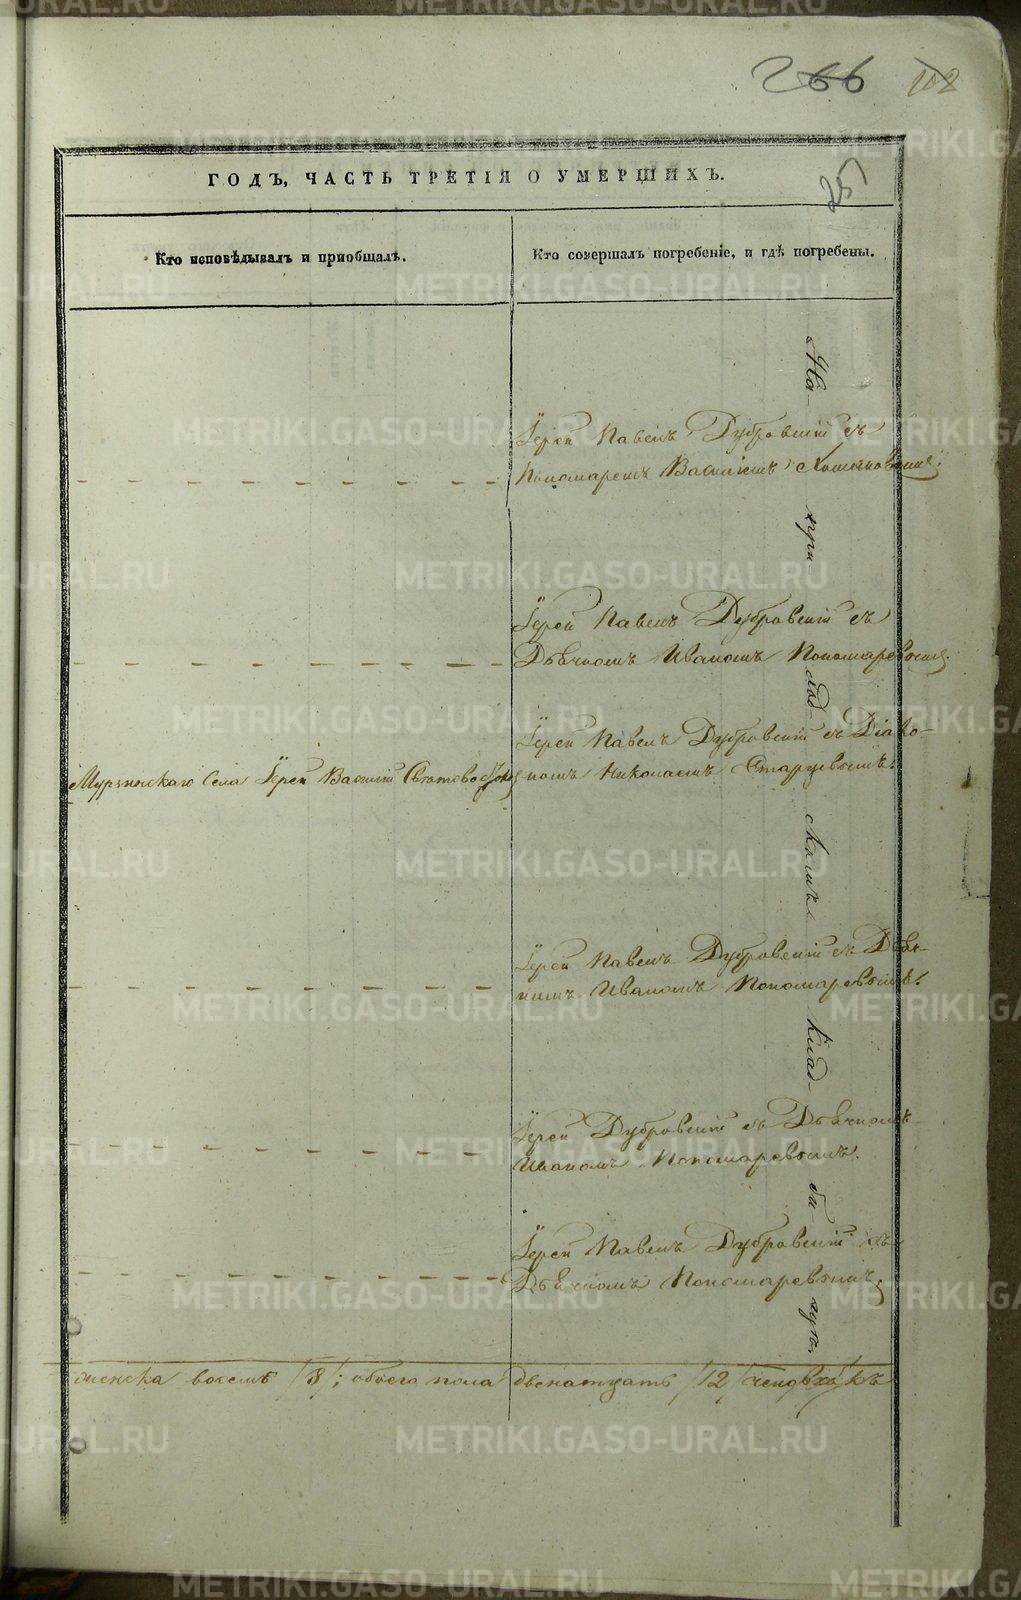 266 102
257
ГОДЪ, ЧАСТЬ ТРЕТІЯ О УМЕРШИХЪ.
Кто исповѣдывалъ и пріобщалъ.
Кто совершалъ погребеніе, и гдѣ погребены.
Іерей Павелъ Дубровскій съ
Пономаремъ Василіемъ
Іерей Павелъ Дубровскій съ
Дьячкомъ Иваномъ Пономаревымъ.
Мурзинскаго Села Іерей Василій
Іерей Павелъ Дубровскій съ Діако-
номъ Николаемъ Старцевымъ.
Іерей Павелъ Дубровскій съ Дьяч-
комъ Иваномъ Пономаревымъ.
Іерей Дубровскій съ Дьячкомъ
Иваномъ Пономаревымъ.
Іерей Павелъ Дубровскій съ
Дьячкомъ Пономаревымъ.
На при ход скомъ клад би щѣ.
женска восемь /8/; обоего пола двенатцать /12/ человѣкъ
METRIKI.GASO-URAL.RU